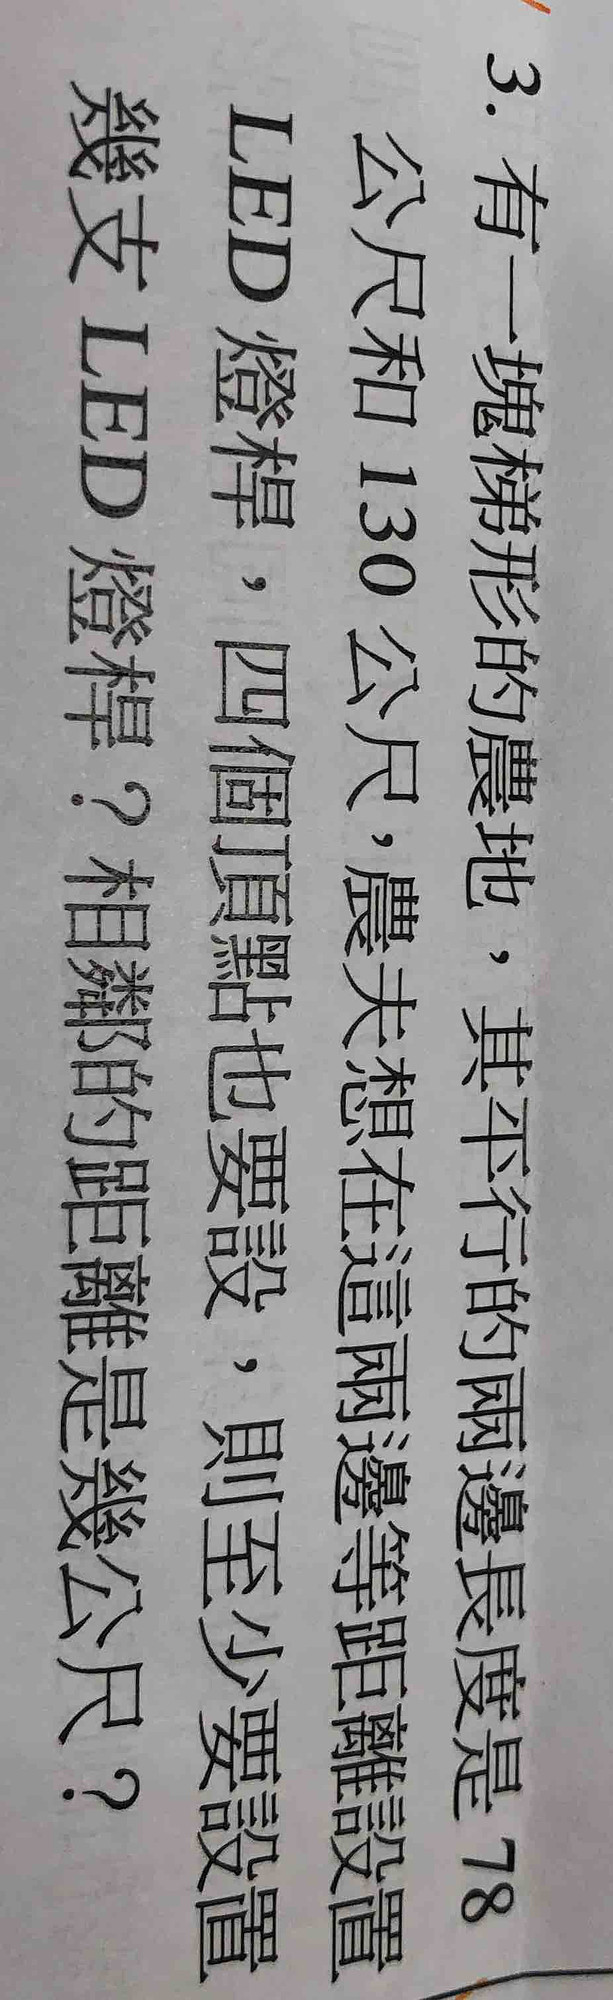 3. 有一塊梯形的農地，其平行的兩邊長度是 78
公尺和 130 公尺，農夫想在這兩邊等距離設置
LED 燈桿，四個頂點也要設，則至少要設置
幾支 LED 燈桿？相鄰的距離是幾公尺？